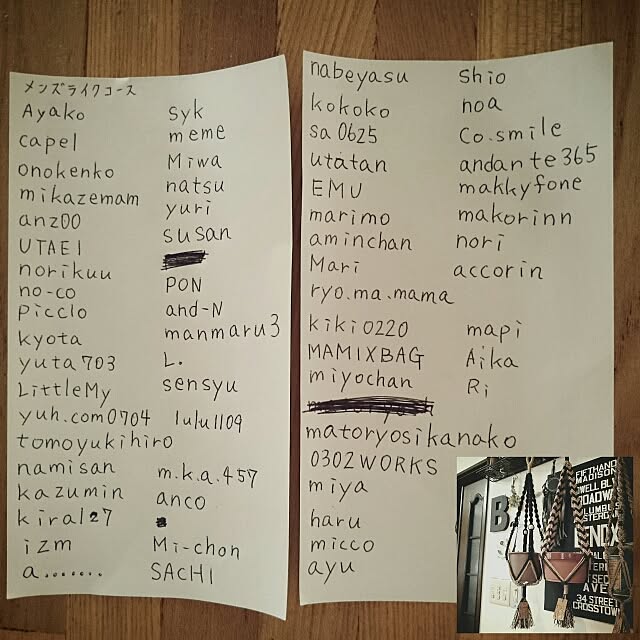 メンズライクコース
Ayako
capel
onokenko
mikazemam
anz00
UTAEI
norikuu
no-co
picclo
kyota
yuta703
LittleMy
yuh.com0704
tomoyukihiro
namisan
kazumin
kiral27
izm
a........
syk
meme
Miwa
natsu
yuri
susan
PON
and-N
manmaru3
L.
sensyu
lulu1109
m.k.a.457
anco
Mi-chon
SACHI
nabeyasu
kokoko
sa0625
utatan
EMU
marimo
aminchan
Mari
ryo.ma.mama
kiki0220
MAMIXBAG
miyochan
matoryosikanako
0302WORKS
miya
haru
micco
ayu
shio
noa
Co.smile
andante365
makkyfone
makorinn
nori
accorin
mapi
Aika
Ri
B
FIFTHAND
MADISON
WELL BLV
ROADWA
LUMBUS
STERDA
34 STREET
CROSSTOW